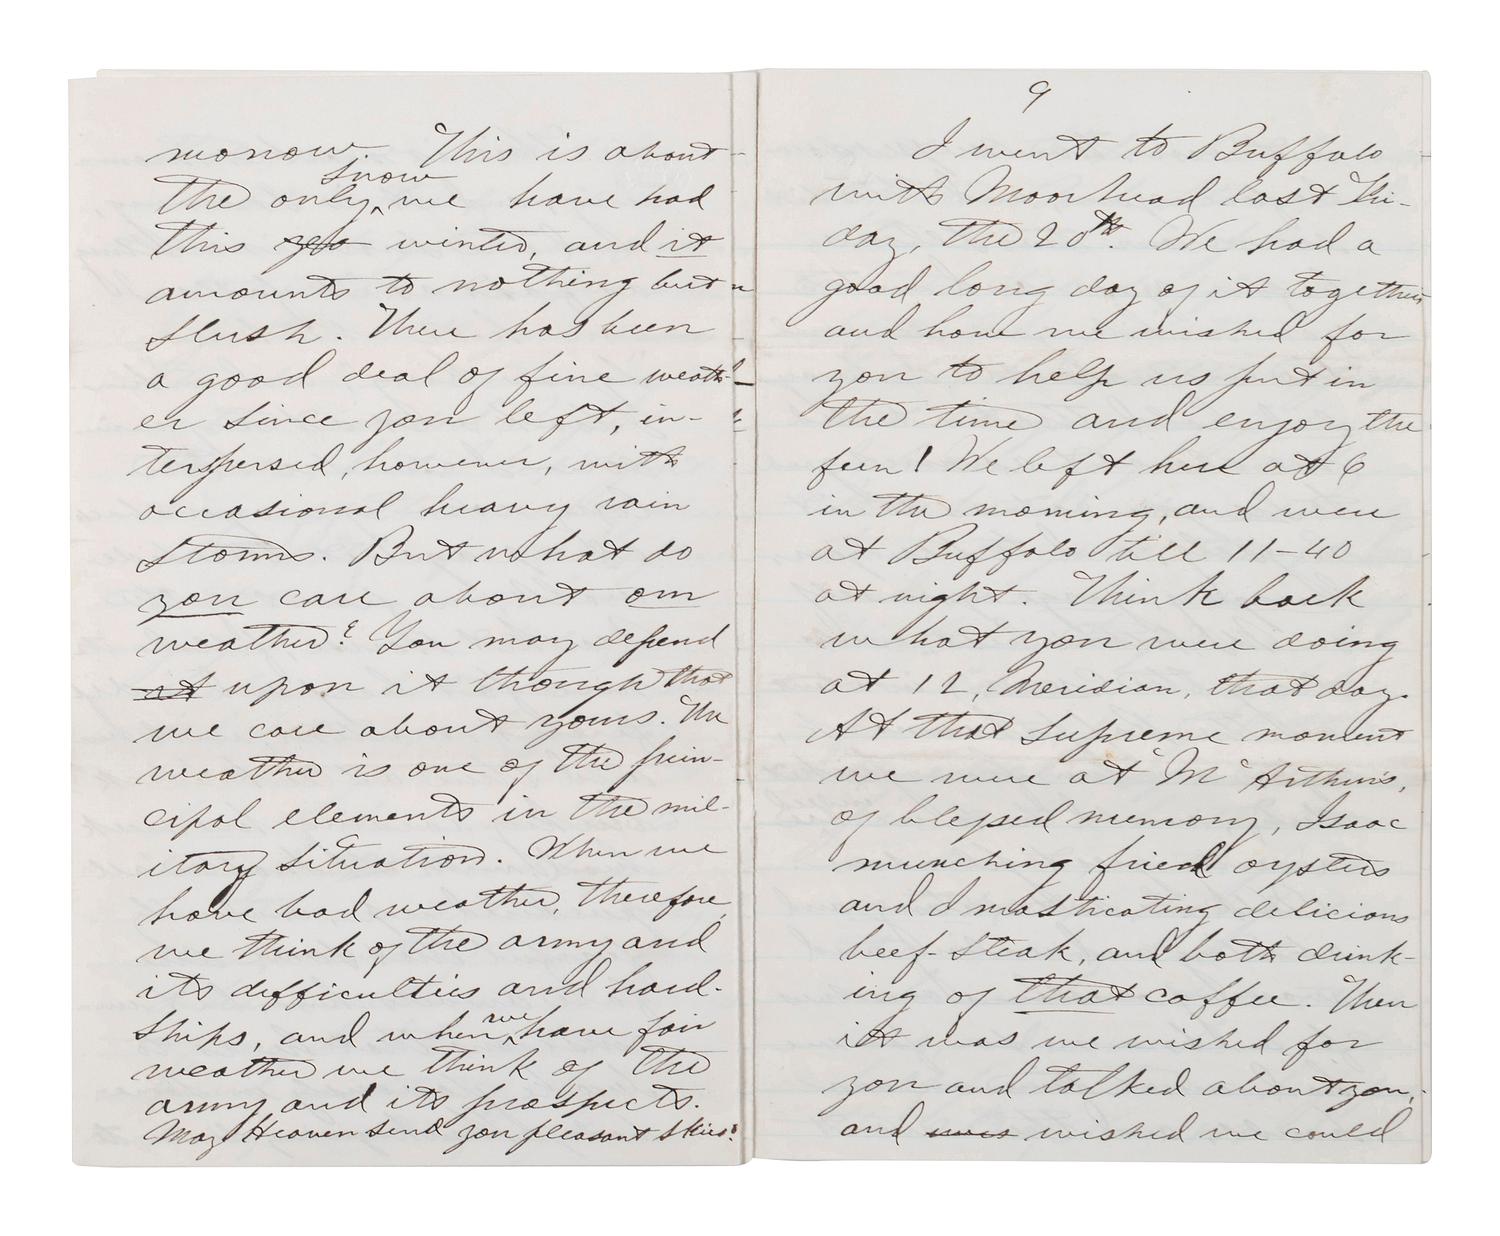 morrow. This is about
the only ^snow we have had
this yea winter, and it
amounts to nothing but
slush. There has been
a good deal of fine weath-
er since you left, in-
terspersed, however, with
occasional heavy rain
storms. But what do
you care about our
weather? You may depend
at upon it though that
we care about yours. The
weather is one of the prin-
cipal elements in the mil-
itary situation. When we
have bad weather, therefore,
we think of the army and
its difficulties and hard-
ships, and when ^we have fair
weather we think of the
army and its prospects.
May Heaven send you pleasant skies!
9
I went to Buffalo
with Moorhead last Fri-
day, the 20th. We had a
good long day of it together
and how we wished for
you to help us put in
the time and enjoy the
fun! We left here at 6
in the morning, and were
at Buffalo till 11-40
at night. Think back
what you were doing
at 12, Meridian, that day.
At that supreme moment
we were at "McArthur's,
of blessed memory, Isaac
munching fried oysters
and I masticating delicious
beef-steak, and both drink-
ing of that coffee. Then
it was we wished for
you and talked about you,
and wis wished we could